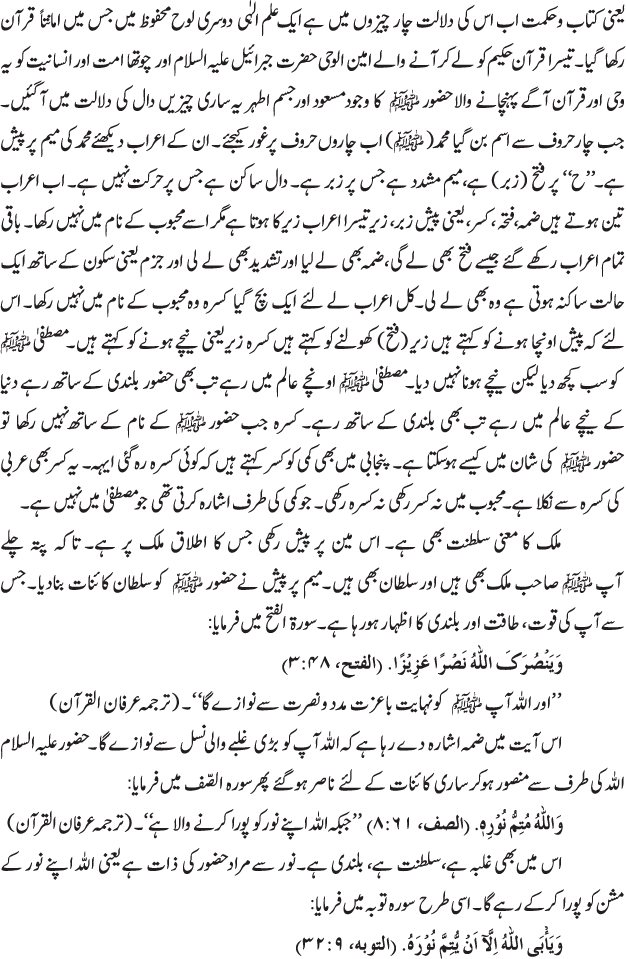 یعنی کتاب وحکمت اب اس کی دلالت چار چیزوں میں ہے ایک علم الٰہی دوسری لوح محفوظ میں جس میں امانتاً قرآن
رکھا گیا۔ تیسرا قرآن حکیم کو لے کر آنے والے امین الوحی حضرت جبرائیل علیہ السلام اور چوتھا امت اور انسانیت کو یہ
وحی اور قرآن آگے پہنچانے والا حضور ﷺ کا وجود مسعود اور جسم اطہر یہ ساری چیزیں دال کی دلالت میں آگئیں۔
جب چار حروف سے اسم بن گیا محمد (ﷺ) اب چاروں حروف پر غور کیجئے۔ ان کے اعراب دیکھئے محمد کی میم پر پیش
ہے۔ ’’ح‘‘ پر فتح (زبر) ہے، میم مشدد ہے جس پر زبر ہے۔ دال ساکن ہے جس پر حرکت نہیں ہے۔ اب اعراب
تین ہوتے ہیں ضمہ، فتحہ، کسر، یعنی پیش زبر، زیر تیسرا اعراب زیر کا ہوتا ہے مگر اسے محبوب کے نام میں نہیں رکھا۔ باقی
تمام اعراب رکھے گئے جیسے فتح بھی لے گی، ضمہ بھی لے لیا اور تشدید بھی لے لی اور جزم یعنی سکون کے ساتھ ایک
حالت ساکنہ ہوتی ہے وہ بھی لے لی۔ کل اعراب لے لئے ایک بچ گیا کسرہ وہ محبوب کے نام میں نہیں رکھا۔ اس
لئے کہ پیش اونچا ہونے کو کہتے ہیں زبر (فتح) کھولنے کو کہتے ہیں کسرہ زیر یعنی نیچے ہونے کو کہتے ہیں۔ مصطفیٰ ﷺ
کو سب کچھ دیا لیکن نیچے ہونا نہیں دیا۔ مصطفیٰ ﷺ اونچے عالم میں رہے تب بھی حضور بلندی کے ساتھ رہے دنیا
کے نیچے عالم میں رہے تب بھی بلندی کے ساتھ رہے۔ کسرہ جب حضور ﷺ کے نام کے ساتھ نہیں رکھا تو
حضور ﷺ کی شان میں کیسے ہوسکتا ہے۔ پنجابی میں بھی کمی کو کسر کہتے ہیں کہ کوئی کسرہ رہ گئی ایہہ۔ یہ کسر بھی عربی
کی کسرہ سے نکلا ہے۔ محبوب میں نہ کسر رکھی نہ کسرہ رکھی۔ جو کمی کی طرف اشارہ کرتی تھی جو مصطفیٰ میں نہیں ہے۔
ملک کا معنی سلطنت بھی ہے۔ اس مین پر پیش رکھی جس کا اطلاق ملک پر ہے۔ تاکہ پتہ چلے
آپ ﷺ صاحب ملک بھی ہیں اور سلطان بھی ہیں۔ میم پر پیش نے حضور ﷺ کو سلطان کائنات بنادیا۔ جس
سے آپ کی قوت، طاقت اور بلندی کا اظہار ہورہا ہے۔ سورۃ الفتح میں فرمایا:
وَّيَنْصُرَكَ اللهُ نَصْرًا عَزِيْزًا. (الفتح، ۴۸:۳)
’’اور اللہ آپ ﷺ کو نہایت باعزت مدد و نصرت سے نوازے گا‘‘۔ (ترجمہ عرفان القرآن)
اس آیت میں ضمہ اشارہ دے رہا ہے کہ اللہ آپ کو بڑی غلبے والی نسل سے نوازے گا۔ حضور علیہ السلام
اللہ کی طرف سے منصور ہوکر ساری کائنات کے لئے ناصر ہوگئے پھر سورہ الصّف میں فرمایا:
وَاللهُ مُتِمُّ نُوْرِهٖ. (الصف، ۶۱:۸) ’’جبکہ اللہ اپنے نور کو پورا کرنے والا ہے‘‘۔ (ترجمہ عرفان القرآن)
اس میں بھی غلبہ ہے، سلطنت ہے، بلندی ہے۔ نور سے مراد حضور کی ذات ہے یعنی اللہ اپنے نور کے
مشن کو پورا کر کے رہے گا۔ اسی طرح سورہ توبہ میں فرمایا:
وَيَاْبَى اللهُ اِلَّآ اَنْ يُّتِمَّ نُوْرَهٗ. (التوبه، ۹:۳۲)